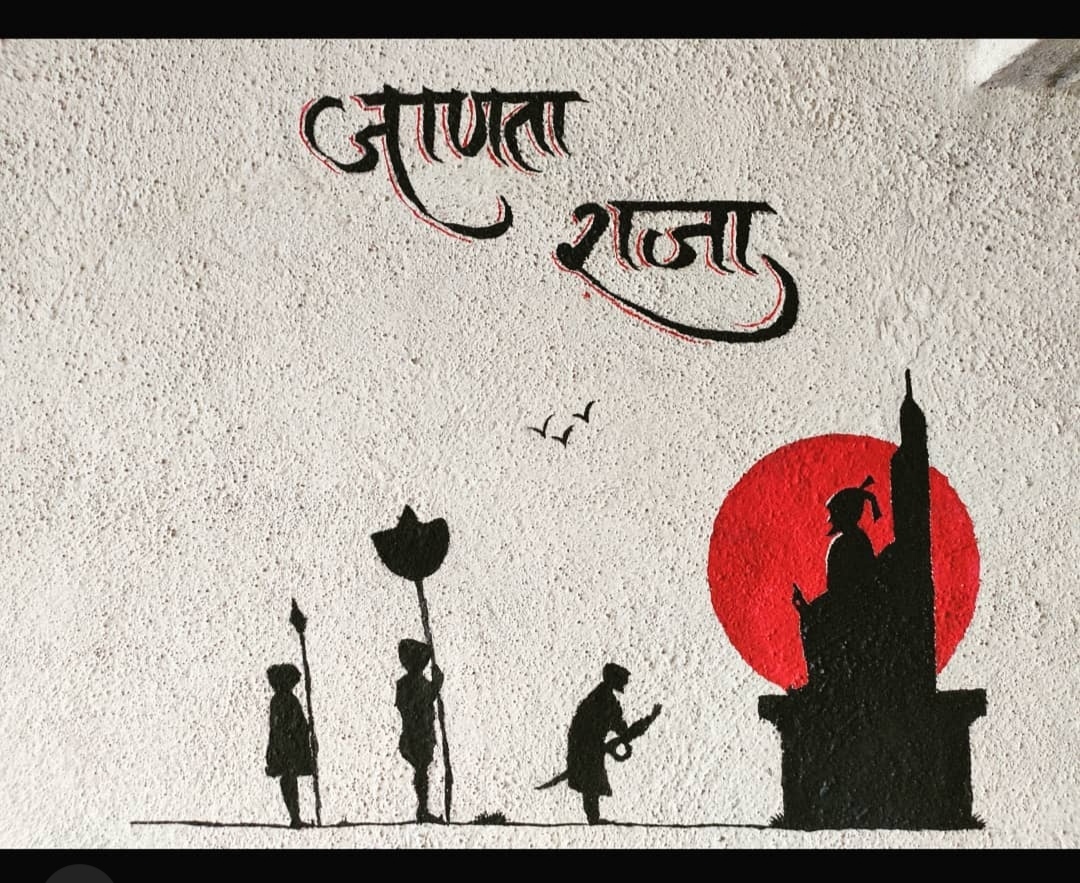 जाणता
राजा